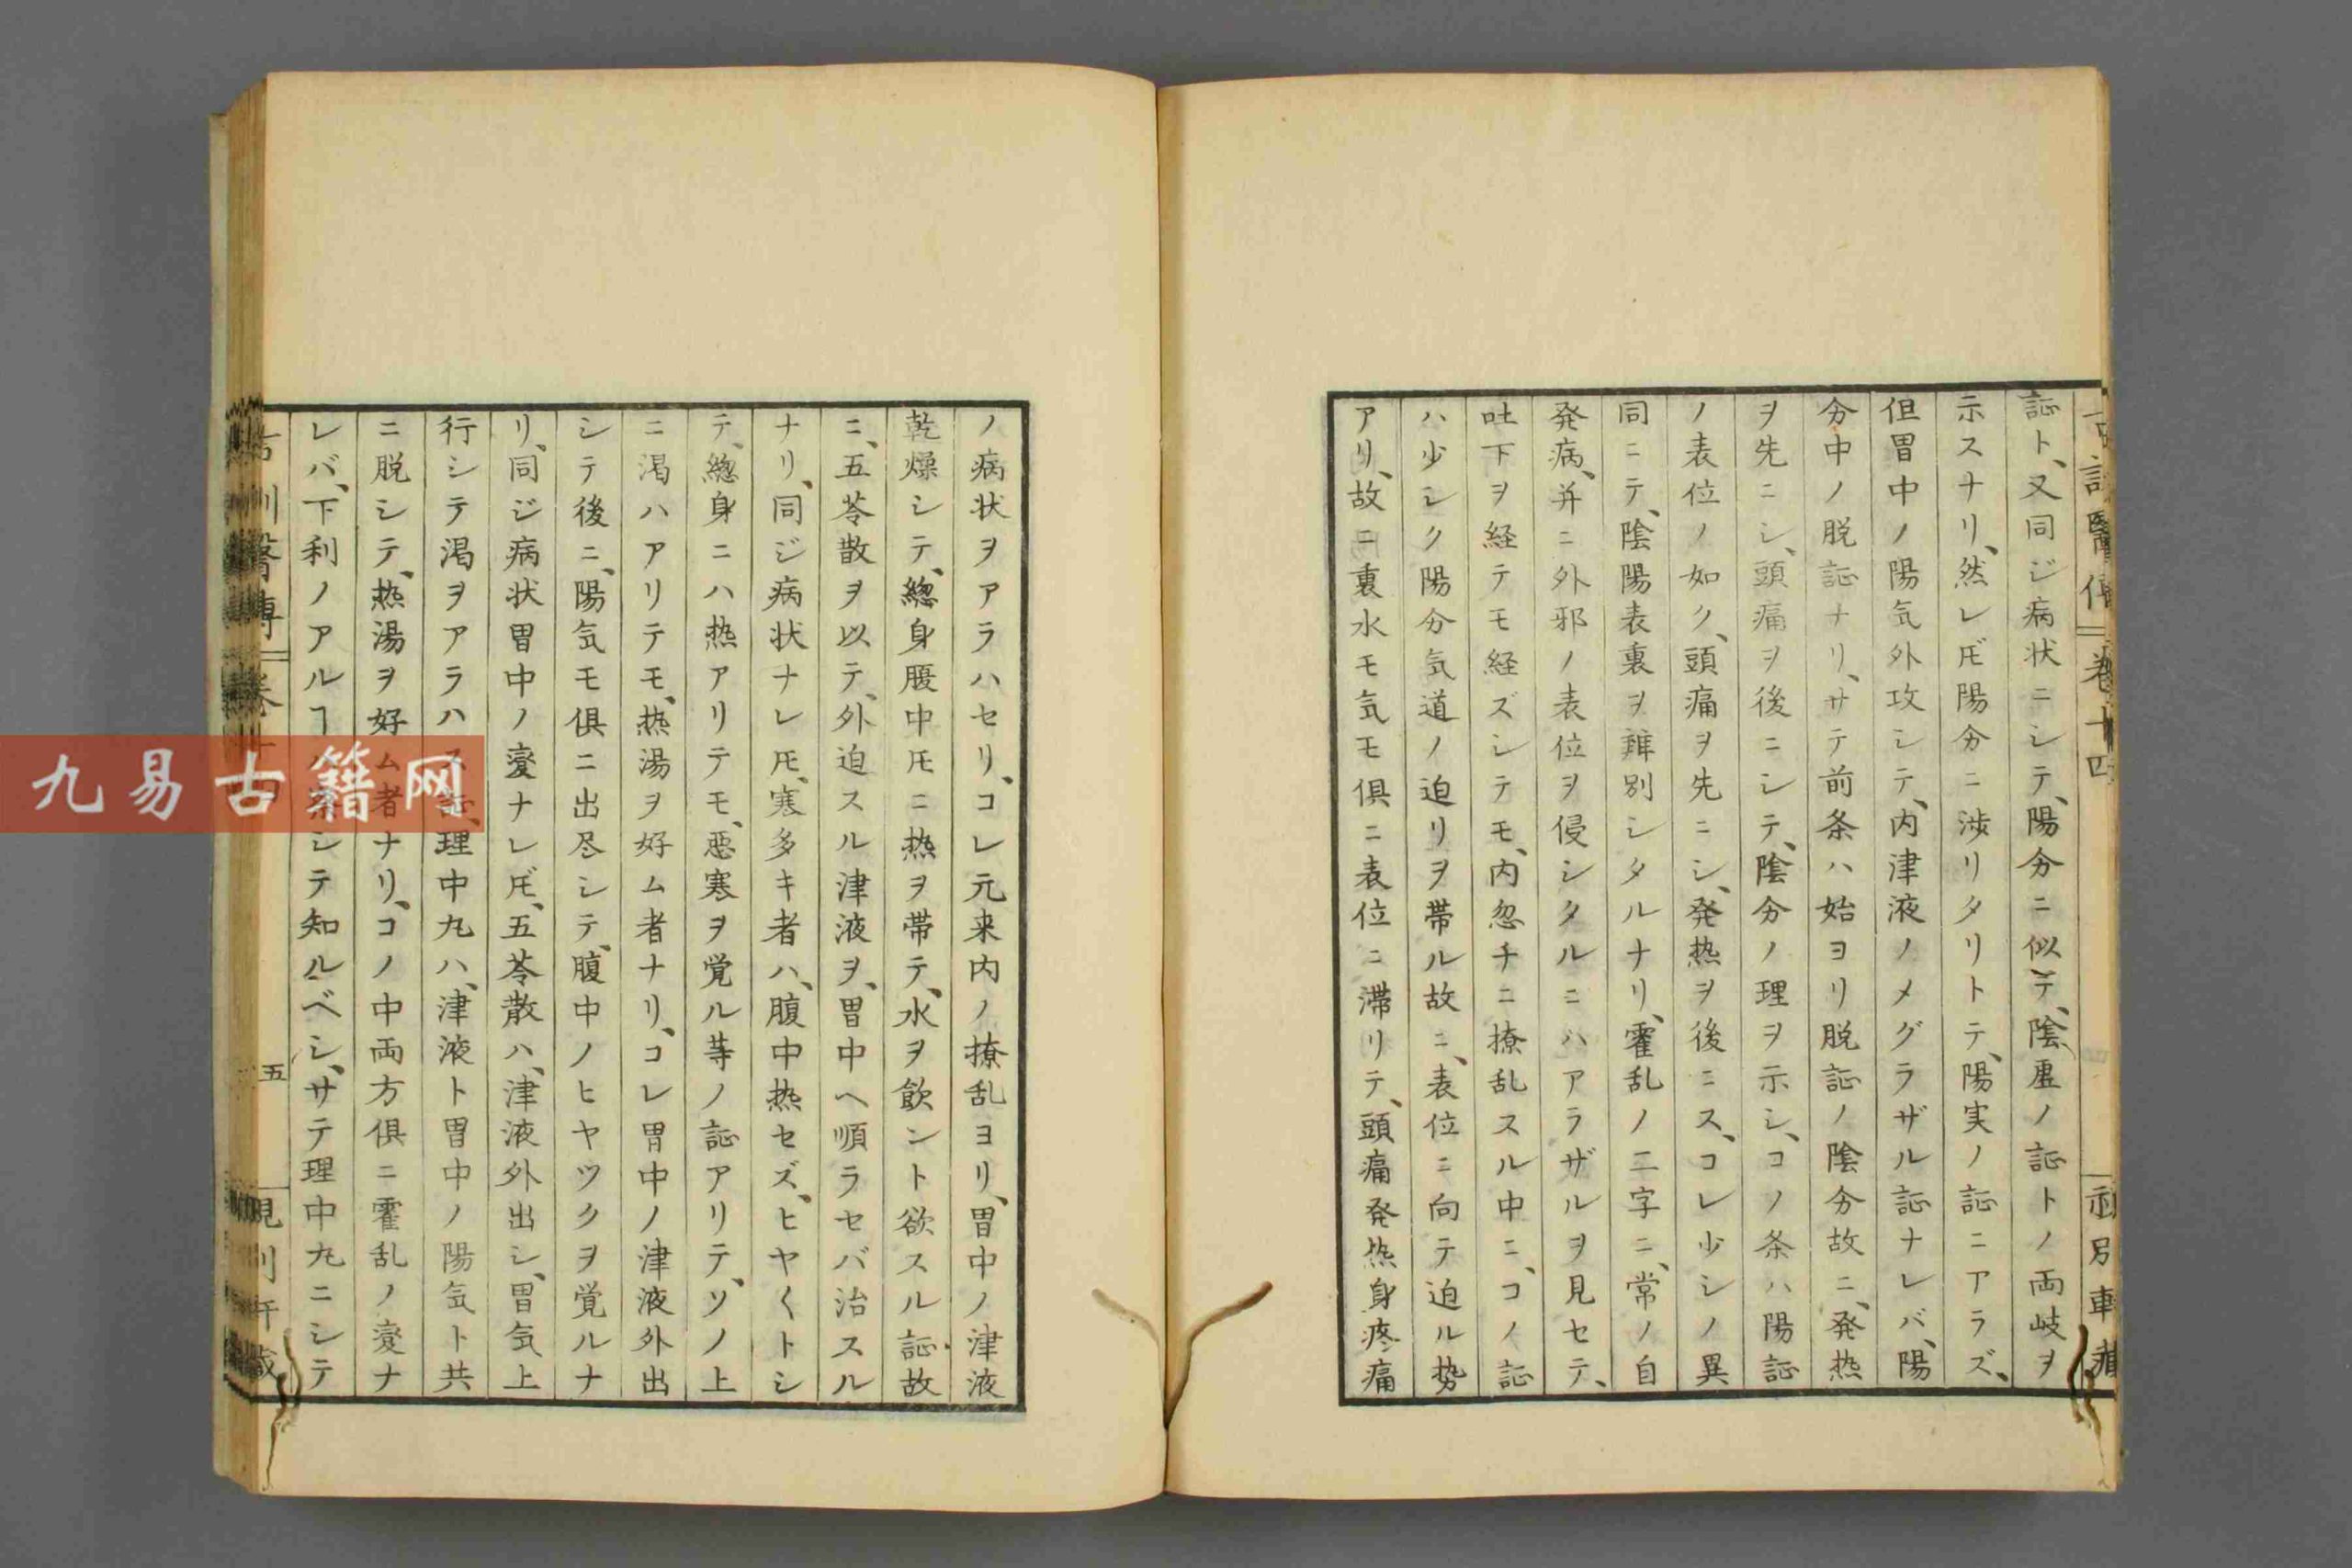 証ト、又同ジ病状ニシテ、陽分ニ似テ、陰虚ノ証トノ両岐ヲ
示スナリ、然レ𪜈陽分ニ渉リタリトテ、陽実ノ証ニアラズ、
但胃中ノ陽気外攻シテ、内津液ノメグラザル証ナレバ、陽
分中ノ脱証ナリ、サテ前条ハ始ヨリ脱証ノ陰分故ニ、発熱
ヲ先ニシ、頭痛ヲ後ニシテ、陰分ノ理ヲ示シ、コノ条ハ陽証
ノ表位ノ如ク、頭痛ヲ先ニシ、発熱ヲ後ニス、コレ少シノ異
同ニテ、陰陽表裏ヲ雑別シタルナリ、霍乱ノ二字ニ、常ノ自
発病、并ニ外邪ノ表位ヲ侵シタルニハアラザルヲ見セテ、
吐下ヲ経テモ経ズシテモ、内忽チニ撩乱スル中ニ、コノ証
ハ少シク陽分気道ノ迫リヲ帯ル故ニ、表位ニ向テ迫ル勢
アリ、故ニ裏水モ気モ倶ニ表位ニ滞リテ、頭痛発熱身疼痛
ノ病状ヲアラハセリ、コレ元来内ノ撩乱ヨリ、胃中ノ津液
乾燥シテ、総身腹中𪜈ニ熱ヲ帯テ、水ヲ飲ント欲スル証故
ニ、五苓散ヲ以テ、外迫スル津液ヲ、胃中ヘ順ラセバ治スル
ナリ、同ジ病状ナレ𪜈、寒多キ者ハ、腹中熱セズ、ヒヤ〱トシ
テ、総身ニハ熱アリテモ、悪寒ヲ覚ル等ノ証アリテ、ソノ上
ニ渇ハアリテモ、熱湯ヲ好ム者ナリ、コレ胃中ノ津液外出
シテ後ニ、陽気モ倶ニ出尽シテ、腹中ノヒヤツクヲ覚ルナ
リ、同ジ病状胃中ノ変ナレ𪜈、五苓散ハ、津液外出シ、胃気上
行シテ渇ヲアラハス証、理中丸ハ、津液ト胃中ノ陽気ト共
ニ脱シテ、熱湯ヲ好ム者ナリ、コノ中両方倶ニ霍乱ノ変ナ
レバ、下利ノアルヿハ察シテ知ルベシ、サテ理中丸ニシテ
古訓醫傳 巻十四
五
九易古籍网